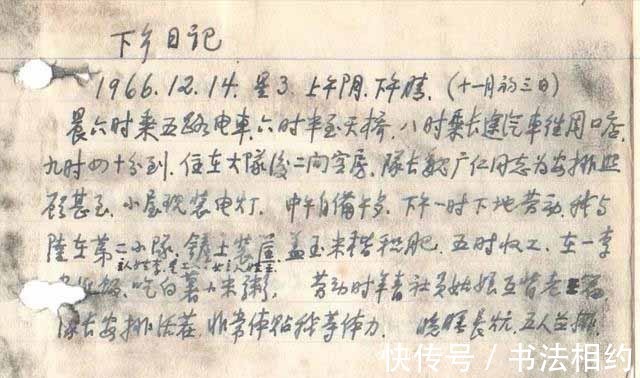 下乡日记
1966.12.14.星3.上午阴.下午晴.(十一月初三日)
晨六时乘五路电车,六时半至天桥,八时乘长途汽车往周口店,
九时四十分到.住在大队后二间空房,队长魏广仁同志为安排照
顾甚至,小屋现装电灯.中午自备午乡.下午一时下地劳动,我与
陆在第二小队,铲土装筐盖玉米秸积肥.五时收工,在一李
饭,吃白薯小米粥.劳动时年青社员姑娘互背老
队长安排活茬,非常体贴我等体力.临睡长炕,五人
快传号 / 书法相约